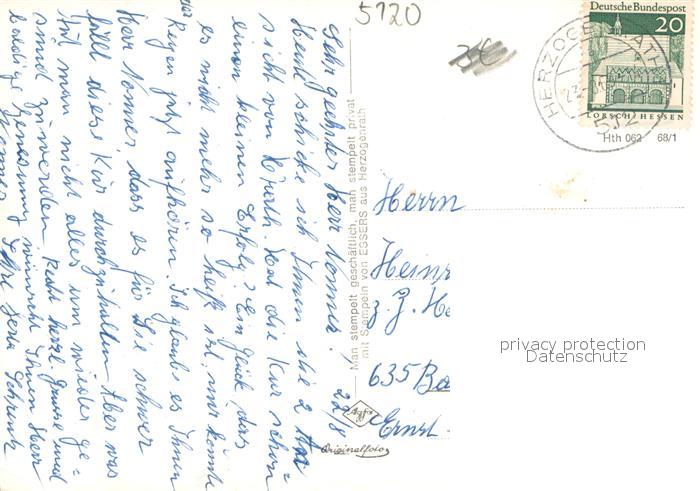 5120
Deutsche Bundespost
20
LORSCH/HESSEN
HERZOGENRATH
512
Hth 062 68/1
Sehr geehrter Herr Nonner! 22/8
Heute schicke ich Ihnen die 2 An
sicht von H'rath. Hat die Kur schon
einen kleinen Erfolg? Ein Glück, das
es nicht mehr so heiß ist, nur könnte der
Regen jetzt aufhören. Ich glaube es Ihnen
Herr Nonner, dass es für Sie schwer
fällt diese Kur durchzuhalten. Aber was
tut man nicht alles um wieder ge-
sund zu werden. Recht herzl. Grüsse und
baldige Genesung wünscht Ihnen Herr
Nonner Ihre
Man stempelt geschäftlich, man stempelt privat
mit Stempeln von ESSERS aus Herzogenrath
Agfa
Originalfoto
Herrn
Hein
z. Z. He
635 Ba
Ernst
privacy protection
Datenschutz